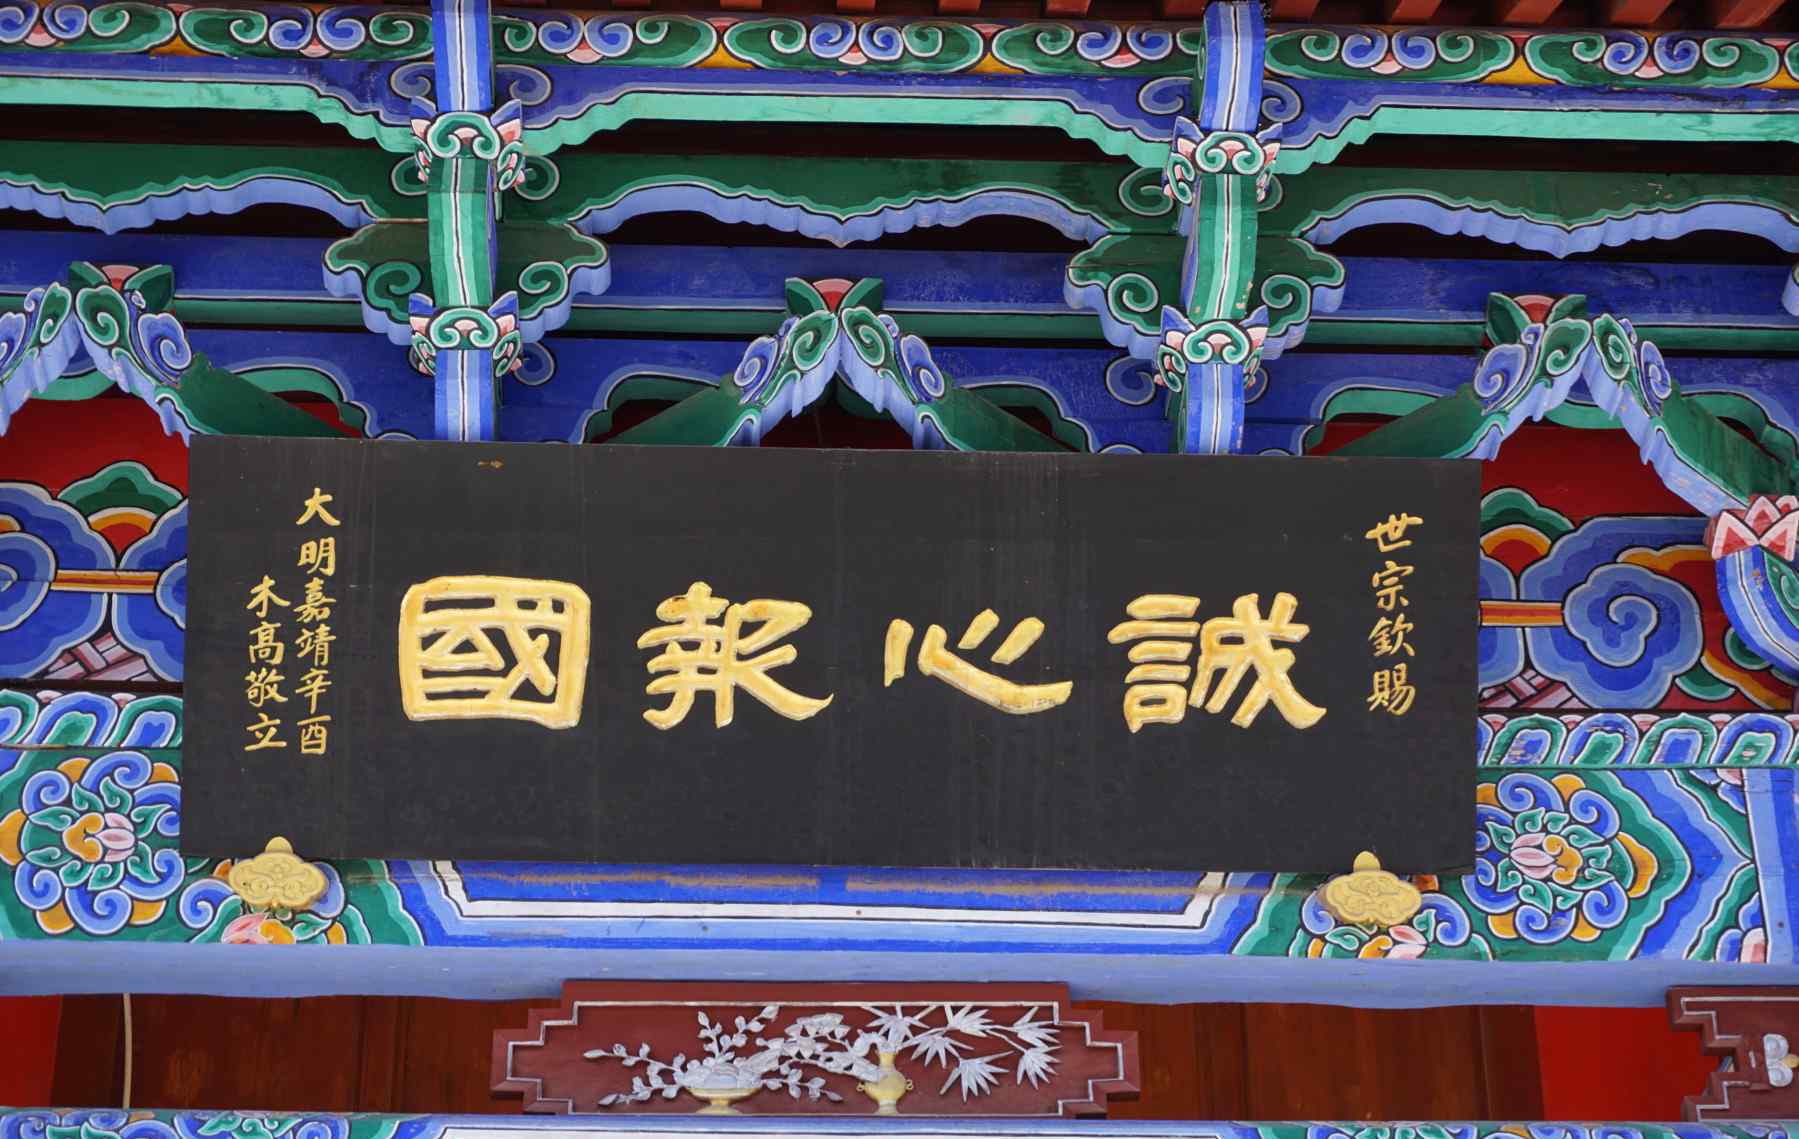 世宗欽賜
誠心報國
大明嘉靖辛酉
木高敬立